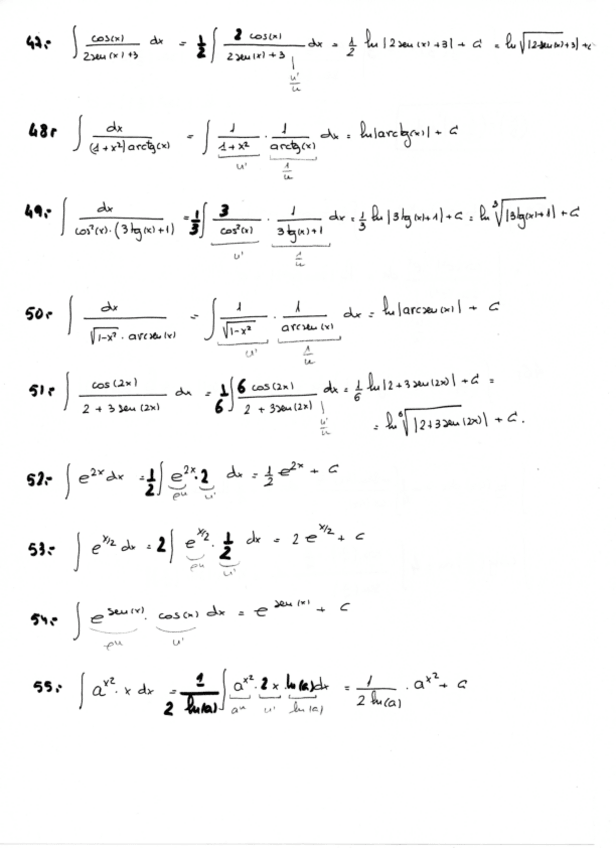 47.- ∫ cos(x)/(2sen(x)+3) dx = 1/2 ∫ 2 cos(x)/(2sen(x)+3) dx = 1/2 ln|2sen(x)+3| + C = ln √|2sen(x)+3| + C
u'/u
48.- ∫ dx/((1+x²)arctg(x)) = ∫ 1/(1+x²) · 1/arctg(x) dx = ln|arctg(x)| + C
u' 1/u
49.- ∫ dx/(cos²(x)·(3tg(x)+1)) = 1/3 ∫ 3/cos²(x) · 1/(3tg(x)+1) dx = 1/3 ln|3tg(x)+1| + C = ln ³√|3tg(x)+1| + C
u' 1/u
50.- ∫ dx/(√(1-x²) · arcsen(x)) = ∫ 1/√(1-x²) · 1/arcsen(x) dx = ln|arcsen(x)| + C
u' 1/u
51.- ∫ cos(2x)/(2+3sen(2x)) dx = 1/6 ∫ 6cos(2x)/(2+3sen(2x)) dx = 1/6 ln|2+3sen(2x)| + C =
u'/u
= ln ⁶√|2+3sen(2x)| + C.
52.- ∫ e^(2x) dx = 1/2 ∫ e^(2x)·2 dx = 1/2 e^(2x) + C
e^u u'
53.- ∫ e^(x/2) dx = 2 ∫ e^(x/2) · 1/2 dx = 2 e^(x/2) + C
e^u u'
54.- ∫ e^(sen(x)) · cos(x) dx = e^(sen(x)) + C
e^u u'
55.- ∫ a^(x²) · x dx = 1/(2 ln(a)) ∫ a^(x²) · 2x ln(a) dx = 1/(2 ln(a)) · a^(x²) + C
a^u u' ln(a)